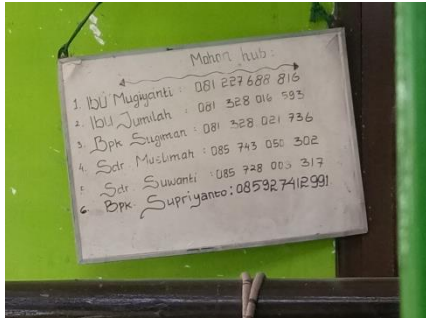 Mohon hub:
1. IbU Mugiyanti : 081 227 688 816
2. IbU Jumilah : 081 328 016 593
3. Bpk Sugiman : 081 328 021 736
4. Sdr Muslimah : 085 743 050 302
5. Sdr. Suwanti : 085 728 003 317
6. Bpk. Supriyanto : 085927412991